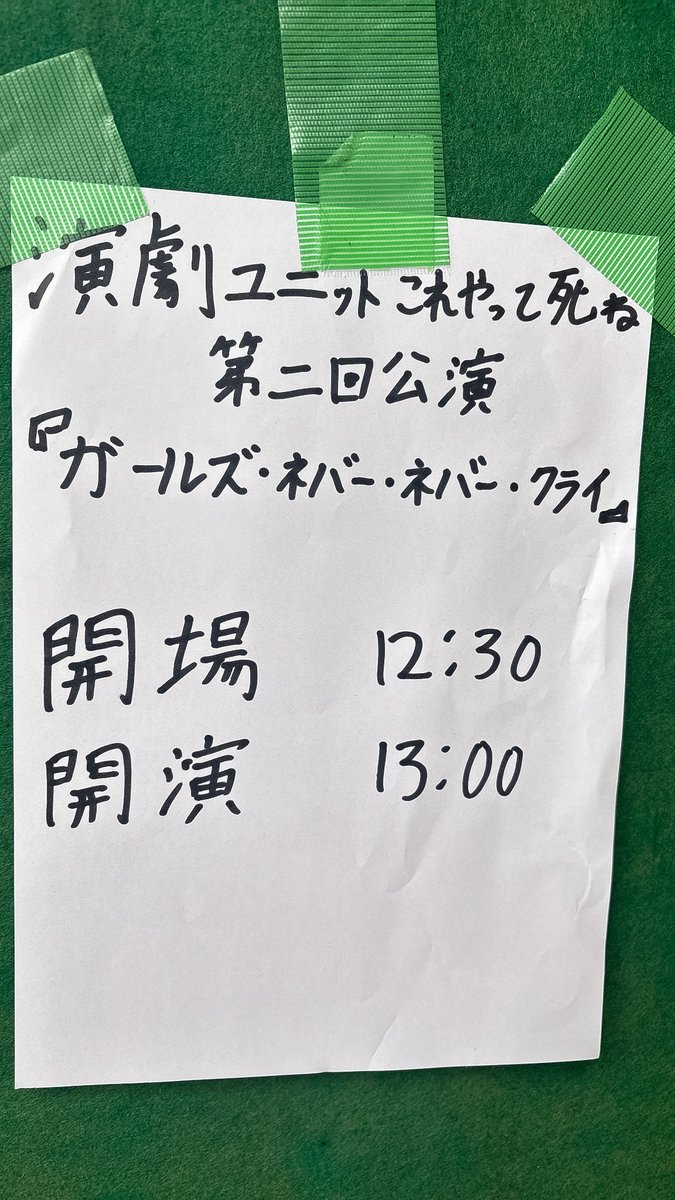 演劇ユニットこれやって死ね
第二回公演
『ガールズ・ネバー・ネバー・クライ』
開場 12:30
開演 13:00